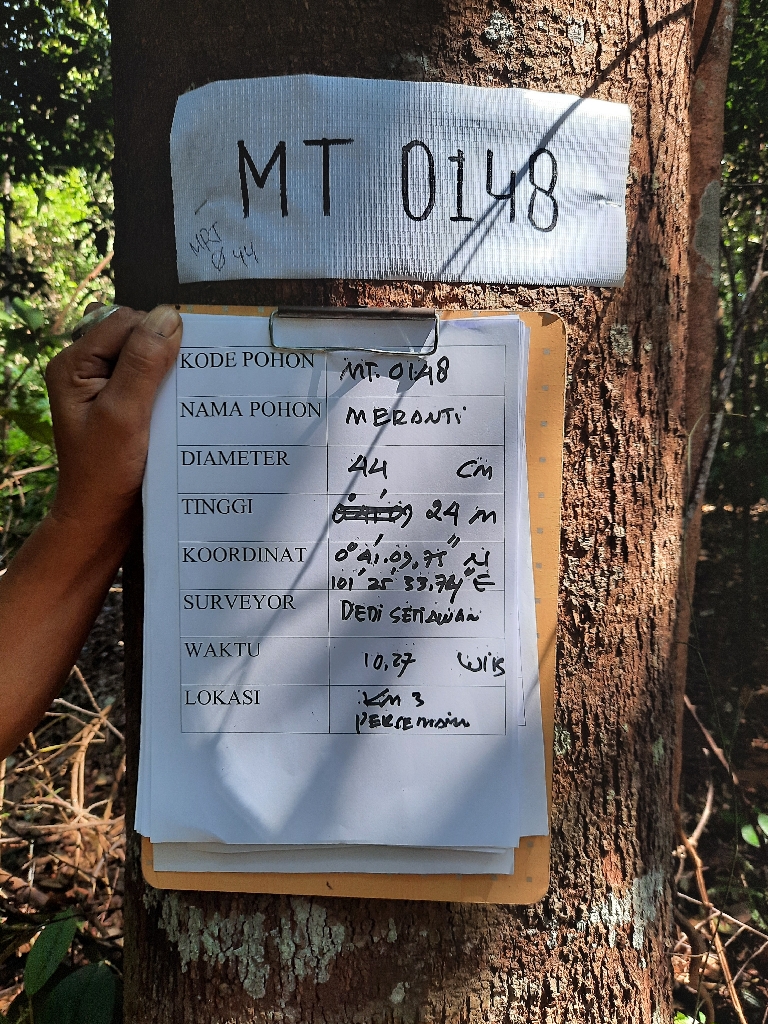 MT 0148
MRT
Ø 44
KODE POHON MT. 0148
NAMA POHON MERANTI
DIAMETER 44 CM
TINGGI 24 m
KOORDINAT 0° 41' 09,75" N
101° 25' 33,74" E
SURVEYOR DEDI SETIAWAN
WAKTU 10,27 WIB
LOKASI KM 3